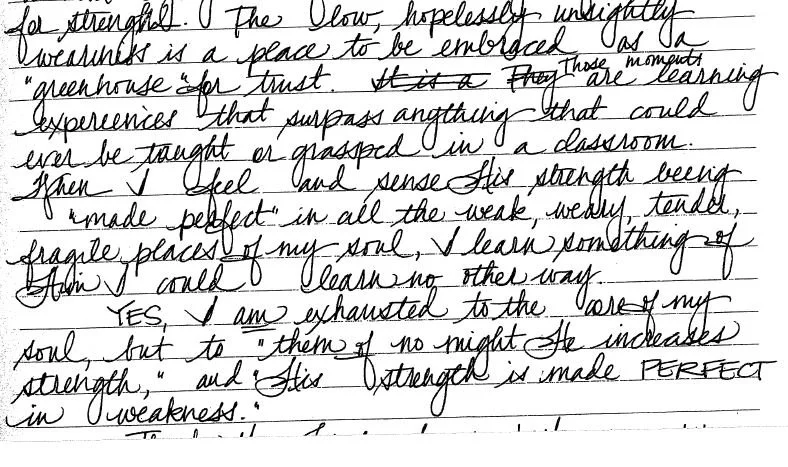 for strength. The low, hopelessly unsightly
weariness is a place to be embraced as a
"greenhouse" for trust. It is a They Those moments are learning
expereences that surpass angthing that could
ever be taught or grassped in a classroom.
When I feel and sense His strength being
"made perfect" in all the weak, weary, tender,
fragile places of my soul, I learn something of
Him I could learn no other way.
YES, I am exhausted to the core of my
soul, but to "them of no might He increases
strength," and "His strength is made PERFECT
in weakness."